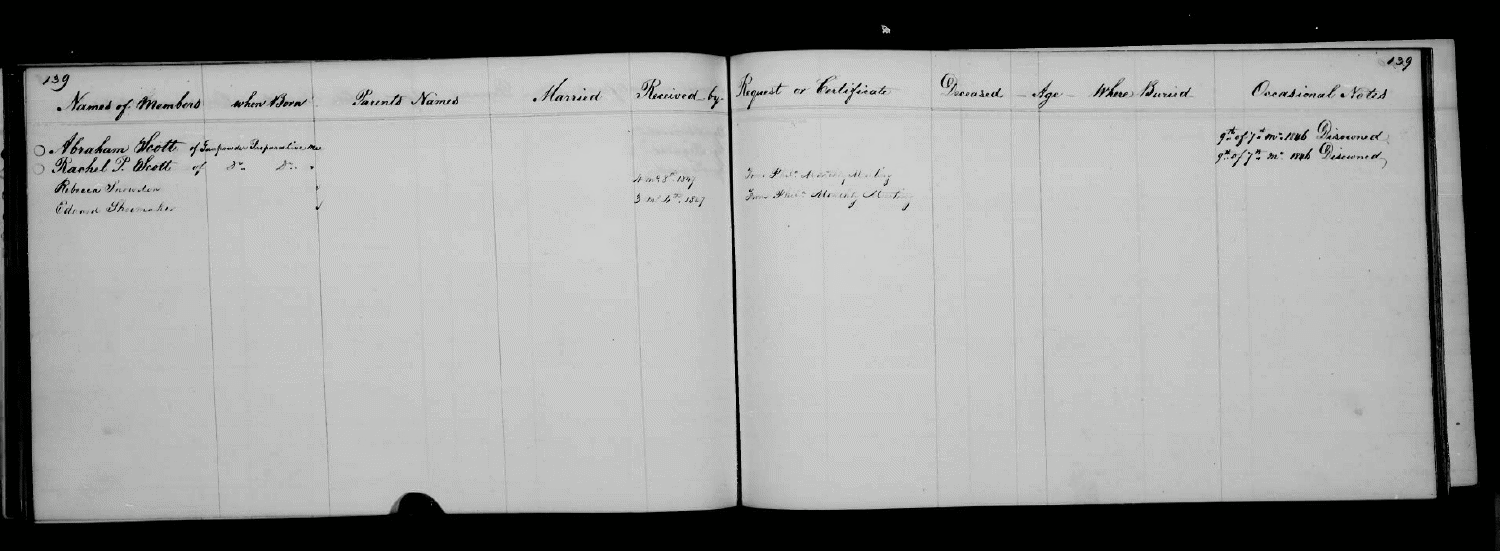 139 139
Names of Members when Born Parents Names Married Received by Request or Certificate Deceased Age Where Buried Occasional Notes
Abraham Scott of Gunpowder Preparative Mee 9th of 7th mo. 1846 Disowned
Rachel P. Scott of Do. Do. 9th of 7th mo. 1846 Disowned
Rebecca Snowden 1847 From Phila. Monthly Meeting
Edward Shoemaker 3 mo. 4th. 1847 From Phila. Monthly Meeting